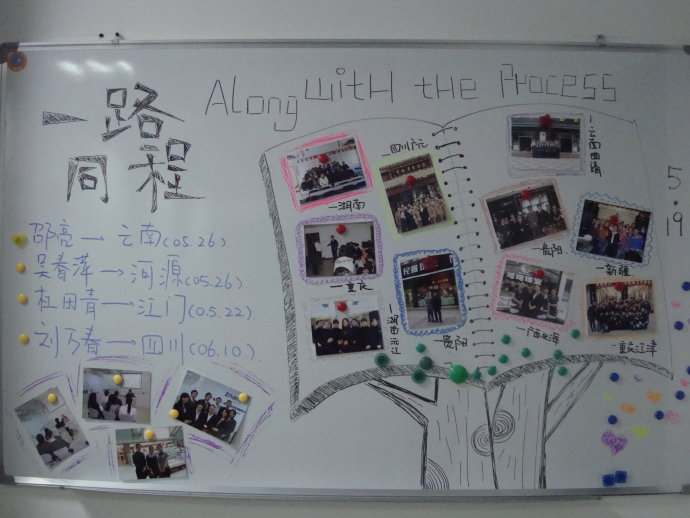 一路
同程
Along With the Process
5.19
邵亮→云南(05.26).
吴春萍→河源(05.26)
杜田青→江门(05.22)
刘万春→四川(06.10).
—四川广元
—湖南
—重庆
—湖南沅江
—贵阳
—云南曲靖
—贵阳
—新疆
—广西北海
—重庆江津